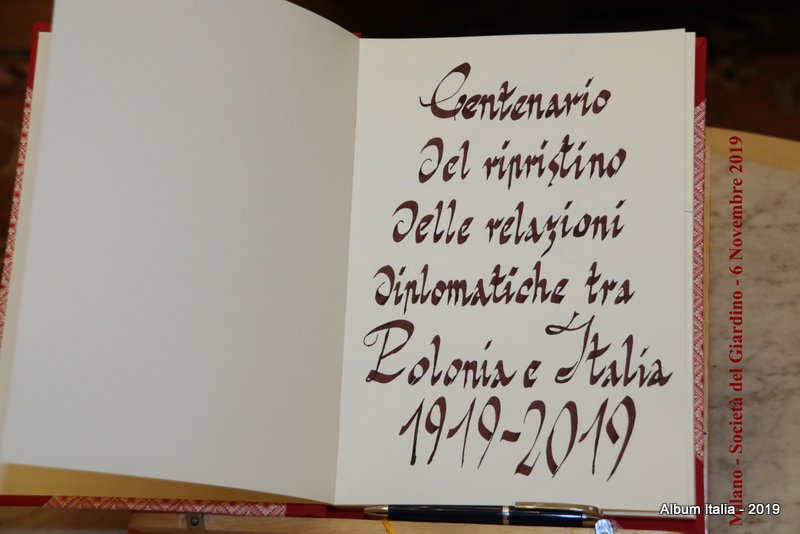 Centenario
del ripristino
delle relazioni
diplomatiche tra
Polonia e Italia
1919-2019
Milano - Società del Giardino - 6 Novembre 2019
Album Italia - 2019